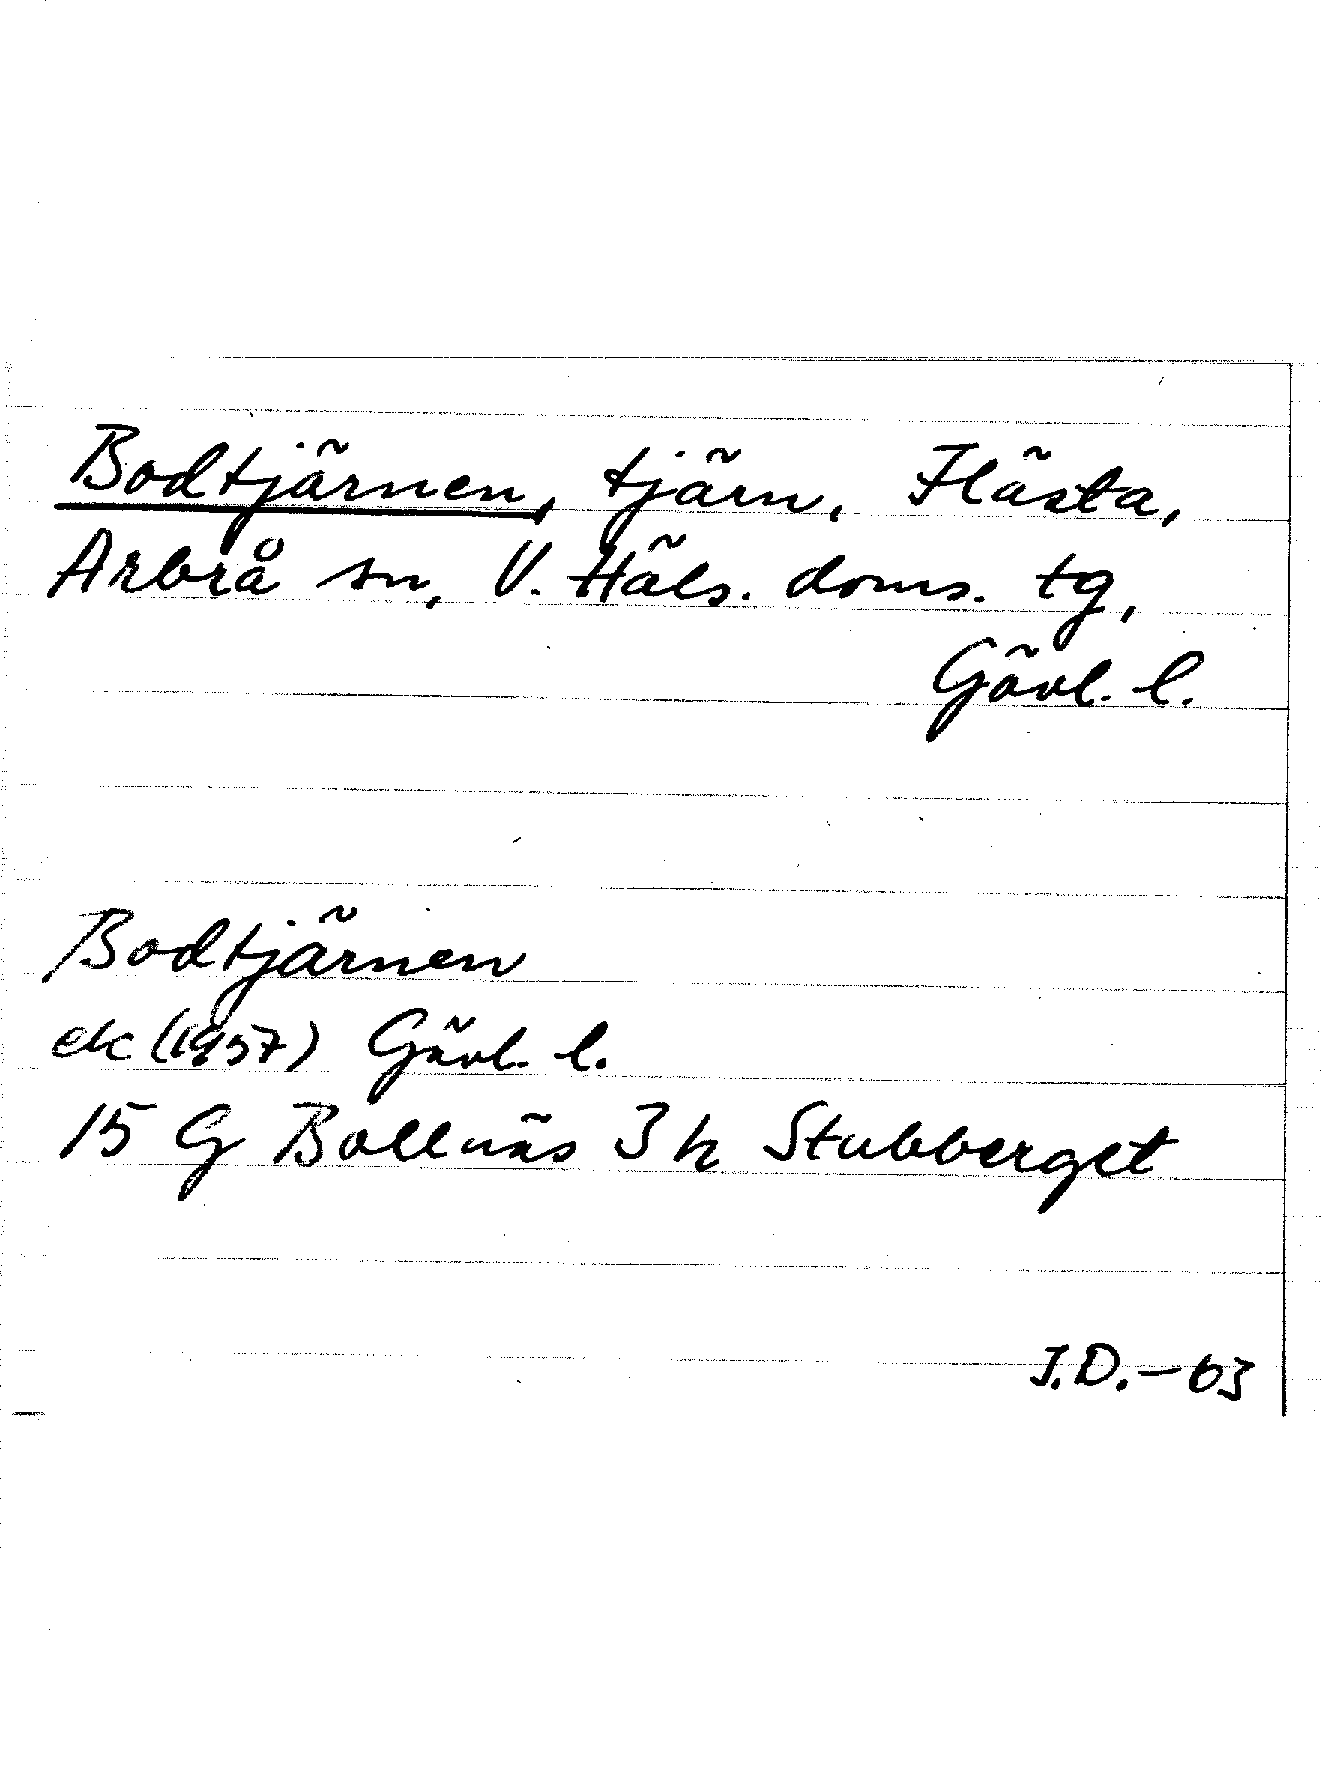 Bodtjärnen, tjärn, Flästa,
Arbrå sn, V. Häls. doms. tg,
Gävl. l.
Bodtjärnen
ek (1957) Gävl. l.
15 G Bollnäs 3 h Stubberget
I.D. – 63